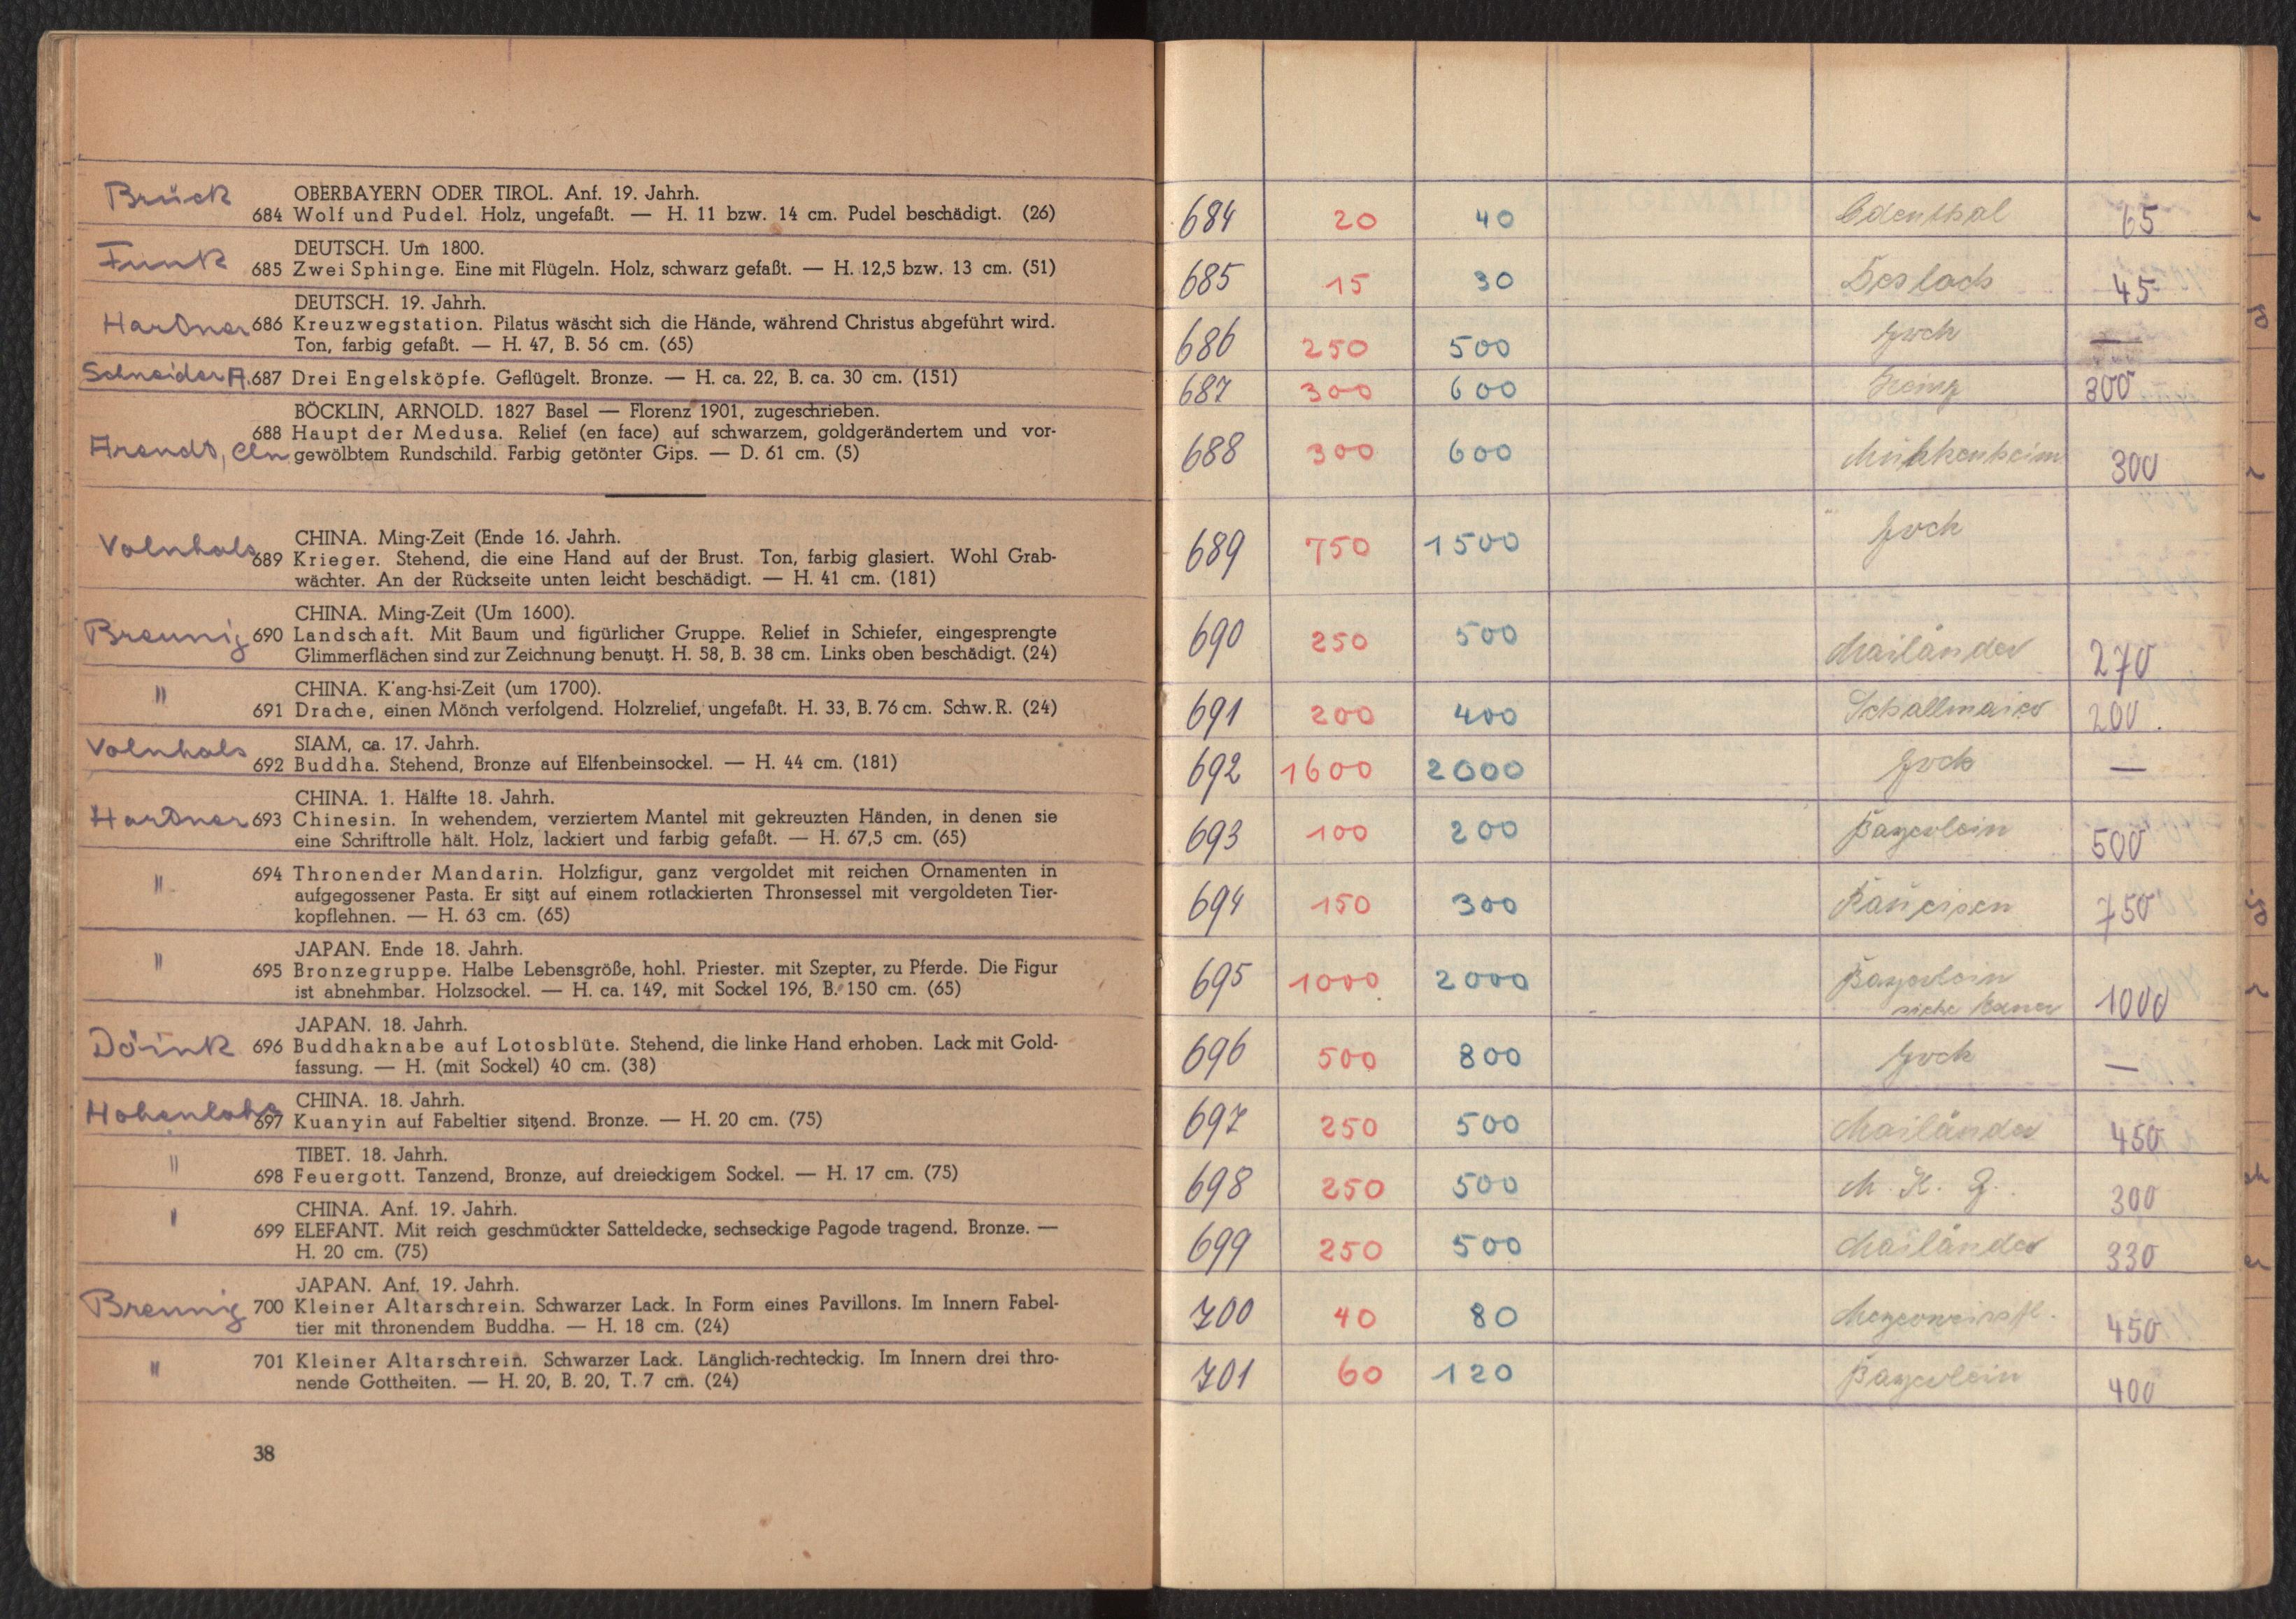 Brück
OBERBAYERN ODER TIROL. Anf. 19. Jahrh.
684 Wolf und Pudel. Holz, ungefaßt. — H. 11 bzw. 14 cm. Pudel beschädigt. (26)
Funk
DEUTSCH. Um 1800.
685 Zwei Sphinge. Eine mit Flügeln. Holz, schwarz gefaßt. — H. 12,5 bzw. 13 cm. (51)
DEUTSCH. 19. Jahrh.
Hartner 686 Kreuzwegstation. Pilatus wäscht sich die Hände, während Christus abgeführt wird.
Ton, farbig gefaßt. — H. 47, B. 56 cm. (65)
Schneider A. 687 Drei Engelsköpfe. Geflügelt. Bronze. — H. ca. 22, B. ca. 30 cm. (151)
BÖCKLIN, ARNOLD. 1827 Basel — Florenz 1901, zugeschrieben.
688 Haupt der Medusa. Relief (en face) auf schwarzem, goldgerändertem und vor-
Arends, Cln gewölbtem Rundschild. Farbig getönter Gips. — D. 61 cm. (5)
Volnhals
CHINA. Ming-Zeit (Ende 16. Jahrh.
689 Krieger. Stehend, die eine Hand auf der Brust. Ton, farbig glasiert. Wohl Grab-
wächter. An der Rückseite unten leicht beschädigt. — H. 41 cm. (181)
CHINA. Ming-Zeit (Um 1600).
Brennig 690 Landschaft. Mit Baum und figürlicher Gruppe. Relief in Schiefer, eingesprengte
Glimmerflächen sind zur Zeichnung benutzt. H. 58, B. 38 cm. Links oben beschädigt. (24)
"
CHINA. K'ang-hsi-Zeit (um 1700).
691 Drache, einen Mönch verfolgend. Holzrelief, ungefaßt. H. 33, B. 76 cm. Schw. R. (24)
Volnhals
SIAM, ca. 17. Jahrh.
692 Buddha. Stehend, Bronze auf Elfenbeinsockel. — H. 44 cm. (181)
CHINA. 1. Hälfte 18. Jahrh.
Hartner 693 Chinesin. In wehendem, verziertem Mantel mit gekreuzten Händen, in denen sie
eine Schriftrolle hält. Holz, lackiert und farbig gefaßt. — H. 67,5 cm. (65)
" 694 Thronender Mandarin. Holzfigur, ganz vergoldet mit reichen Ornamenten in
aufgegossener Pasta. Er sitzt auf einem rotlackierten Thronsessel mit vergoldeten Tier-
kopflehnen. — H. 63 cm. (65)
JAPAN. Ende 18. Jahrh.
" 695 Bronzegruppe. Halbe Lebensgröße, hohl. Priester. mit Szepter, zu Pferde. Die Figur
ist abnehmbar. Holzsockel. — H. ca. 149, mit Sockel 196, B. 150 cm. (65)
JAPAN. 18. Jahrh.
Döink 696 Buddhaknabe auf Lotosblüte. Stehend, die linke Hand erhoben. Lack mit Gold-
fassung. — H. (mit Sockel) 40 cm. (38)
Hohenlohe
CHINA. 18. Jahrh.
697 Kuanyin auf Fabeltier sitzend. Bronze. — H. 20 cm. (75)
"
TIBET. 18. Jahrh.
698 Feuergott. Tanzend, Bronze, auf dreieckigem Sockel. — H. 17 cm. (75)
"
CHINA. Anf. 19. Jahrh.
699 ELEFANT. Mit reich geschmückter Satteldecke, sechseckige Pagode tragend. Bronze. —
H. 20 cm. (75)
JAPAN. Anf. 19. Jahrh.
Brennig 700 Kleiner Altarschrein. Schwarzer Lack. In Form eines Pavillons. Im Innern Fabel-
tier mit thronendem Buddha. — H. 18 cm. (24)
" 701 Kleiner Altarschrein. Schwarzer Lack. Länglich-rechteckig. Im Innern drei thro-
nende Gottheiten. — H. 20, B. 20, T. 7 cm. (24)
38
684 20 40 Odenthal 65
685 15 30 45
686 250 500 —
687 300 600 300
688 300 600 300
689 750 1500
690 250 500 Mailänder 270
691 200 400 Schallmaier 200.
692 1600 2000 —
693 100 200 Bayerlein 500
694 150 300 750
695 1000 2000 Bayerlein
siehe 1000
696 500 800 —
697 250 500 Mailänder 450
698 250 500 300
699 250 500 Mailänder 330
700 40 80 450
701 60 120 Bayerlein 400